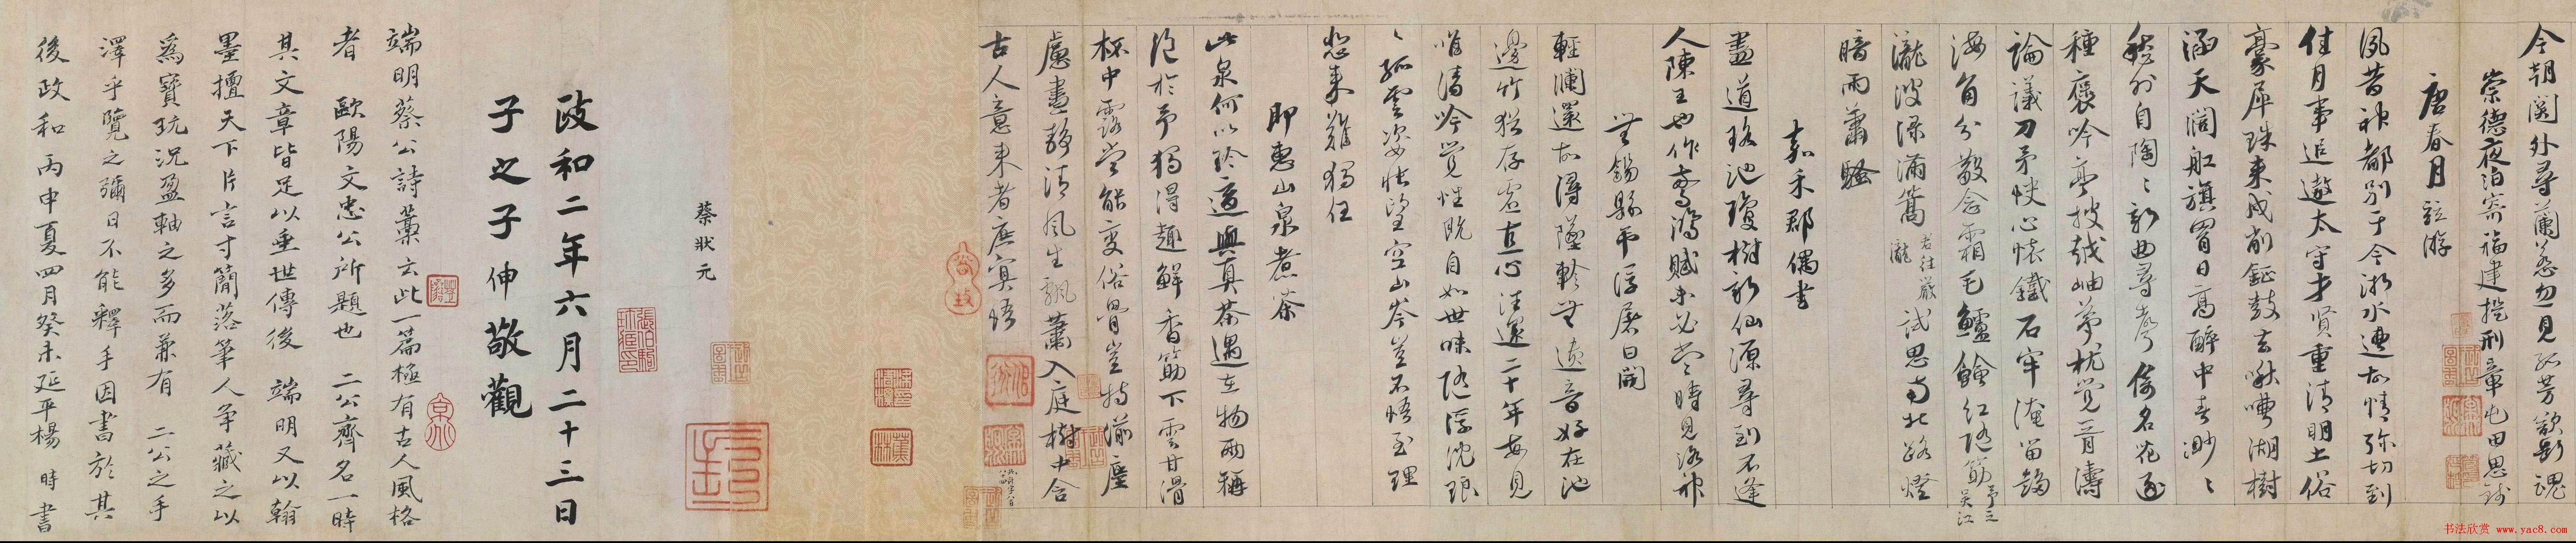 今朝関外尋蘭蕙忽見孤芳欲斷魂
崇德夜泊寄福建提刑章屯田思錢
唐春月並游
夙昔神都別于今浙水遭故情弥切到
佳月事追遨太守才賢重清明土俗
豪犀珠来戍削鉦鼓去啾嘈湖樹
涵天闊舡旗冒日高醉中春渺〻
愁外自陶〻新曲尋聲倚名花逐
種褒吟亭披越岫夢枕覺胥濤
論議刀矛快心懐鐵石牢淹留趨
海角分散念霜毛鱸鱠紅随筯 予之吳江
瀧波渌滿篙 君往嚴瀧 試思南北路燈
暗雨蕭騷
嘉禾郡偶書
盡道瑤池瓊樹新仙源尋到不逢
人陳王也作驚鴻賦未必當時見洛神
無錫縣弔浮屠日開
輕瀾還故潯墜軫無遺音好在池
邊竹猶存虚直心往還二十年每見
唯清吟覺性既自如世味随浮沈琅
〻孤雲姿悵望空山岑豈不悟至理
悲来難獨任
即惠山泉煮茶
此泉何以珍適與真茶遇在物兩稱
絶於予獨得趣鮮香筯下雲甘滑
杯中露當能變俗骨豈特湔塵
慮晝静清風生飄蕭入庭樹中含
古人意来者庶冥悟
蔡狀元
政和二年六月二十三日
子之子伸敬觀
端明蔡公詩藁云此一篇極有古人風格
者歐陽文忠公所題也二公齊名一時
其文章皆足以垂世傳後端明又以翰
墨擅天下片言寸簡落筆人争藏之以
爲寶玩況盈軸之多而兼有二公之手
澤乎覽之彌日不能釋手因書於其
後政和丙申夏四月癸未延平楊時書
书法欣赏 www.yac8.com